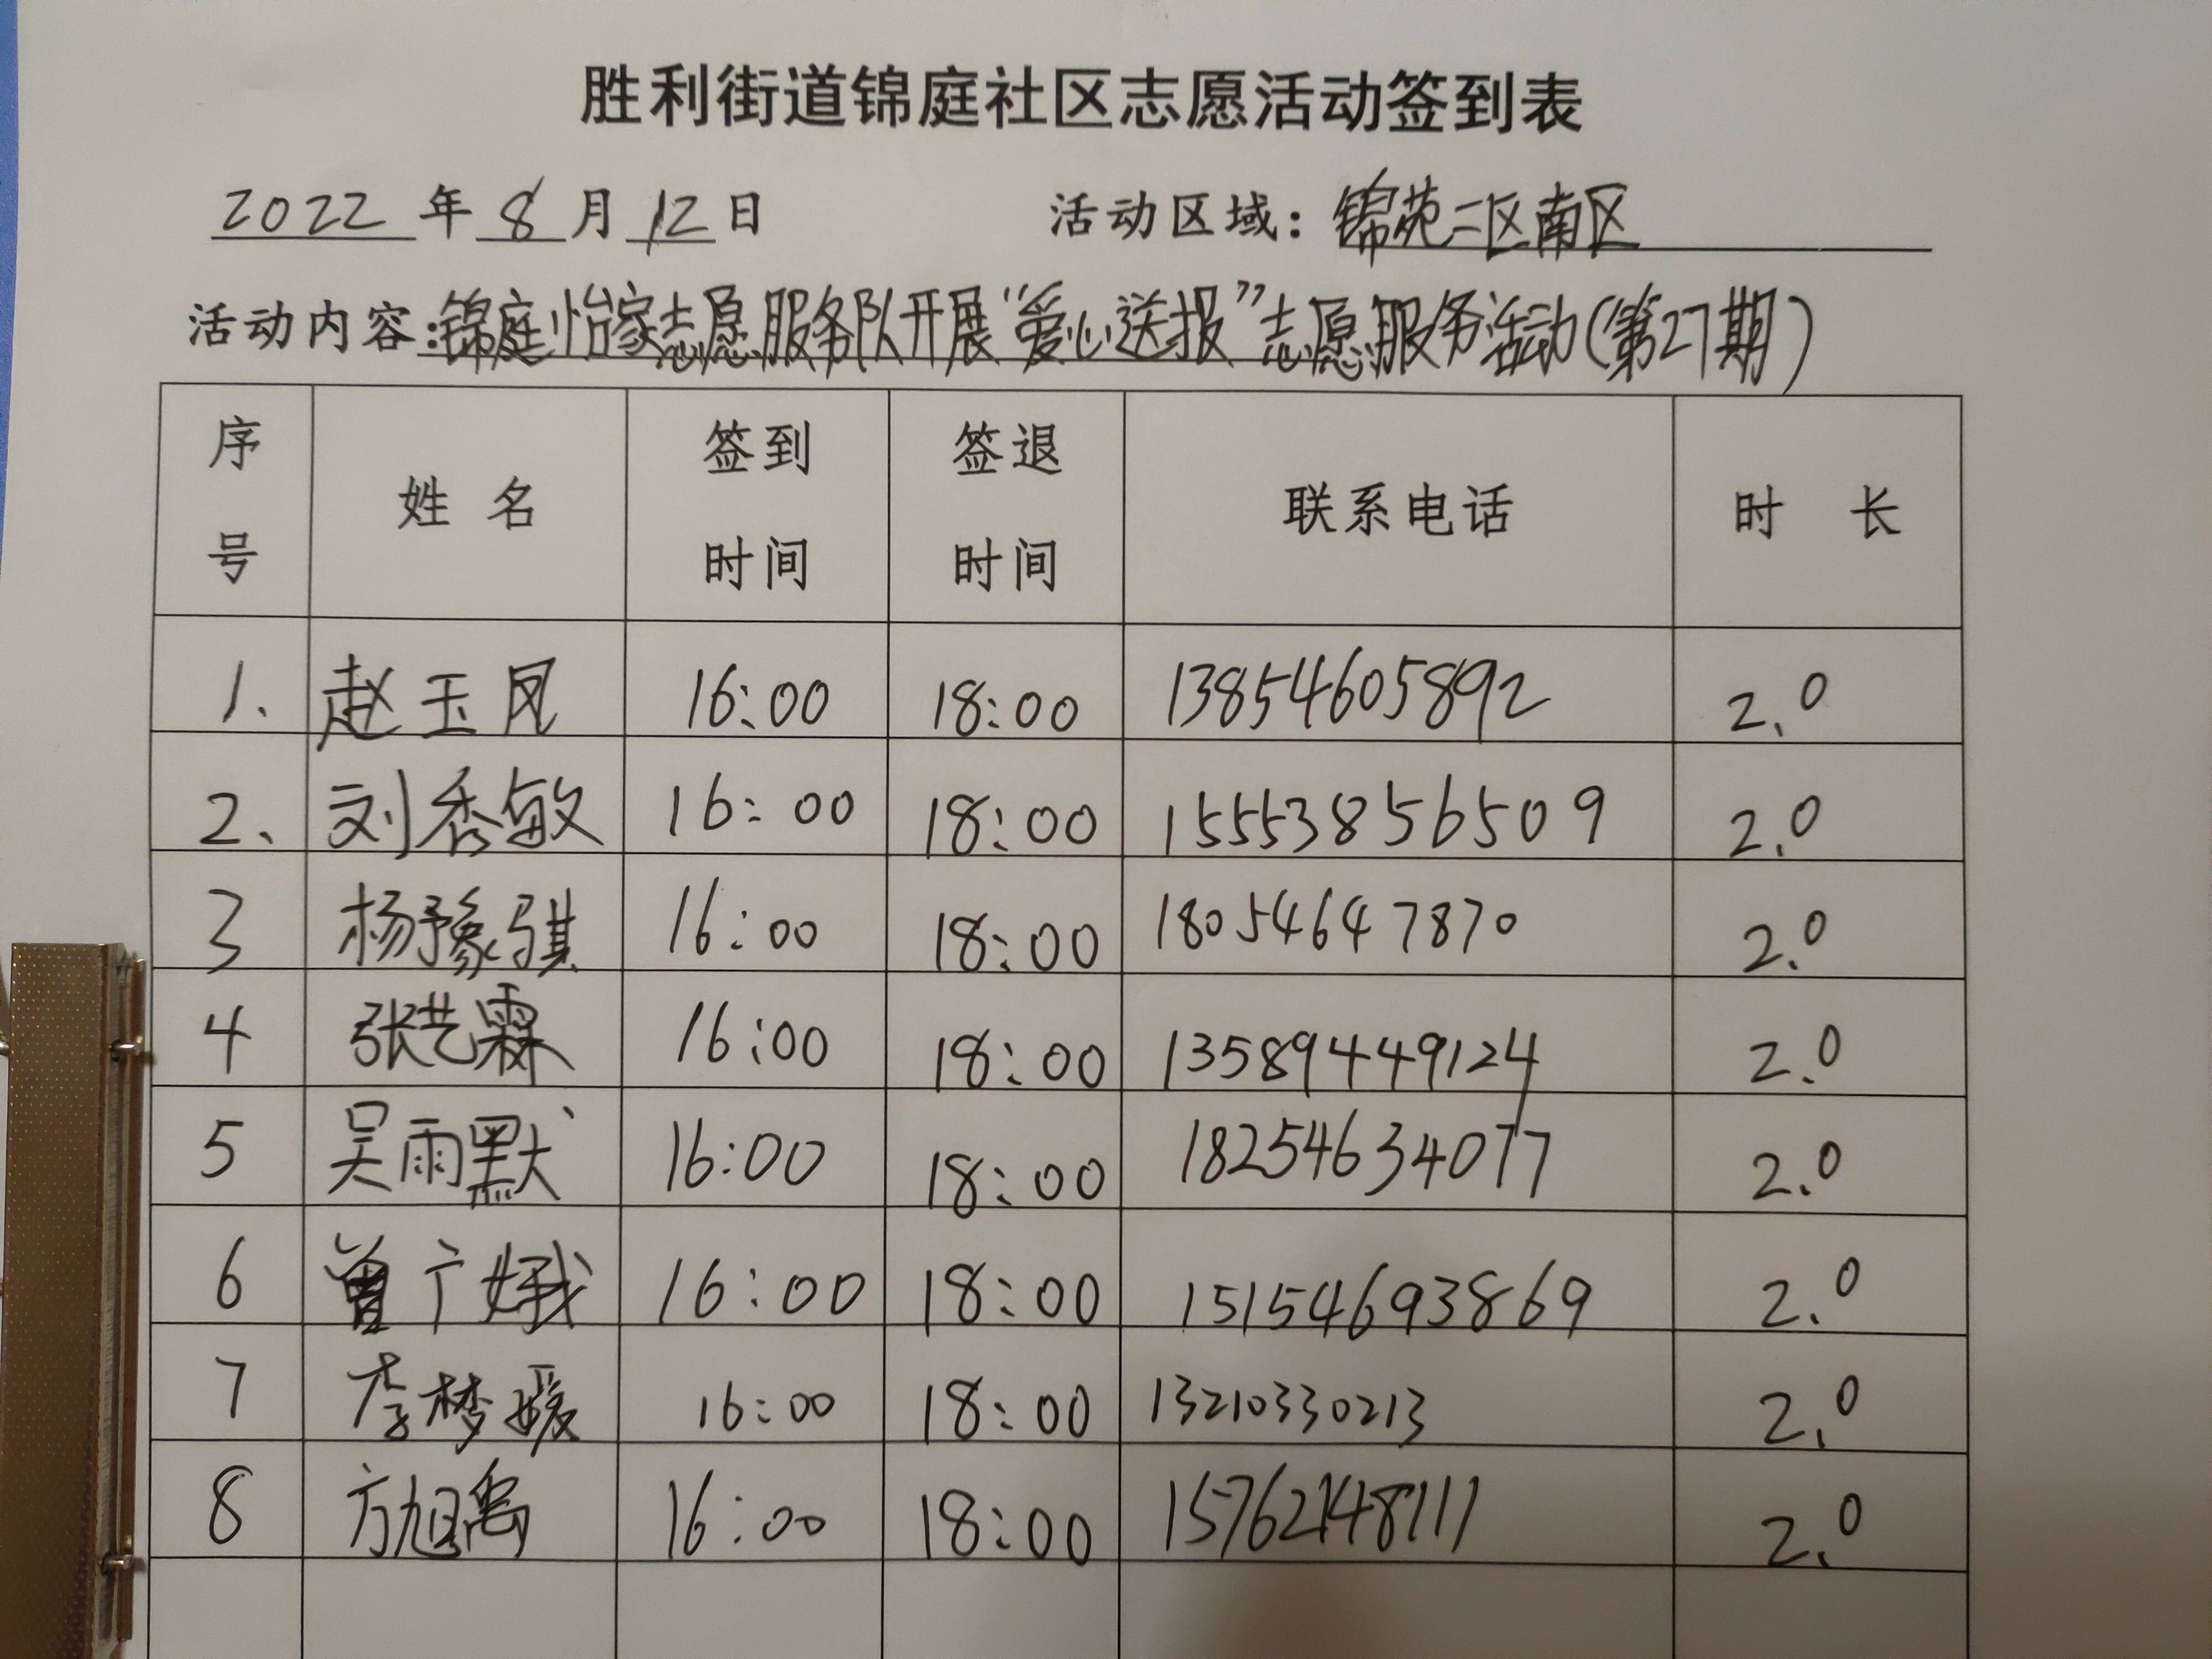 胜利街道锦庭社区志愿活动签到表
2022 年 8 月 12 日 活动区域：锦苑二区南区
活动内容：锦庭怡家志愿服务队开展“爱心送报”志愿服务活动（第27期）
序号 姓名 签到时间 签退时间 联系电话 时长
1、 赵玉凤 16:00 18:00 13854605892 2.0
2、 刘秀敏 16:00 18:00 15553856509 2.0
3 杨豫骐 16:00 18:00 18054647870 2.0
4 张艺霖 16:00 18:00 13589449124 2.0
5 吴雨默 16:00 18:00 18254634077 2.0
6 曾广娥 16:00 18:00 15154693869 2.0
7 李梦媛 16:00 18:00 13210330213 2.0
8 方旭禹 16:00 18:00 15762148111 2.0